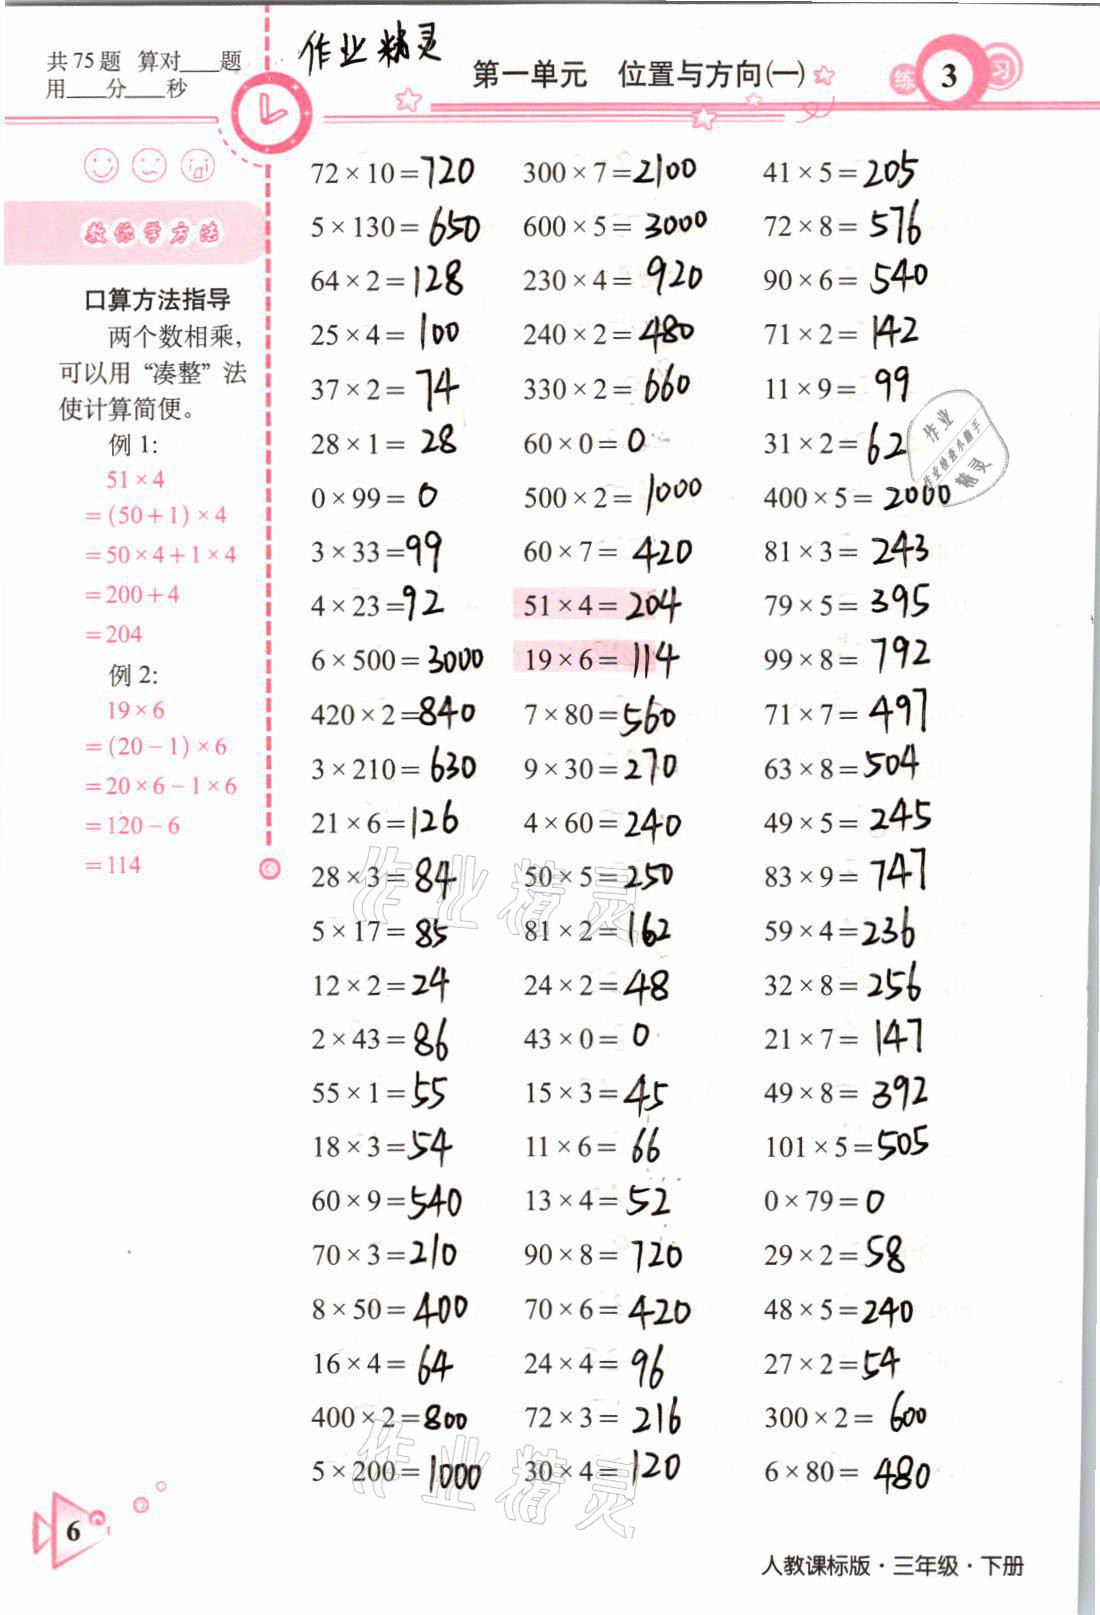 共75题 算对___题
用___分___秒
作业精灵
第一单元 位置与方向(一)
练 3 习
教你学方法
口算方法指导
两个数相乘，
可以用“凑整”法
使计算简便。
例1:
51×4
=(50+1)×4
=50×4+1×4
=200+4
=204
例2:
19×6
=(20-1)×6
=20×6-1×6
=120-6
=114
72×10=720 300×7=2100 41×5=205
5×130=650 600×5=3000 72×8=576
64×2=128 230×4=920 90×6=540
25×4=100 240×2=480 71×2=142
37×2=74 330×2=660 11×9=99
28×1=28 60×0=0 31×2=62
0×99=0 500×2=1000 400×5=2000
3×33=99 60×7=420 81×3=243
4×23=92 51×4=204 79×5=395
6×500=3000 19×6=114 99×8=792
420×2=840 7×80=560 71×7=497
3×210=630 9×30=270 63×8=504
21×6=126 4×60=240 49×5=245
28×3=84 50×5=250 83×9=747
5×17=85 81×2=162 59×4=236
12×2=24 24×2=48 32×8=256
2×43=86 43×0=0 21×7=147
55×1=55 15×3=45 49×8=392
18×3=54 11×6=66 101×5=505
60×9=540 13×4=52 0×79=0
70×3=210 90×8=720 29×2=58
8×50=400 70×6=420 48×5=240
16×4=64 24×4=96 27×2=54
400×2=800 72×3=216 300×2=600
5×200=1000 30×4=120 6×80=480
作业
作业检查小助手
精灵
作业精灵
作业精灵
6
人教课标版·三年级·下册